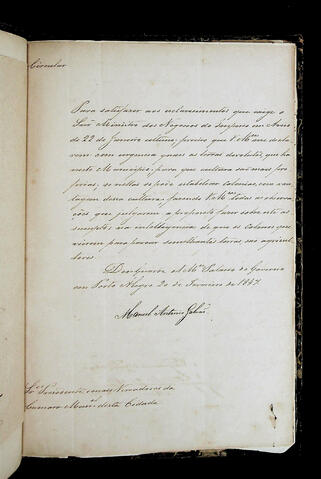 Circular
Para satisfazer aos esclarecimentos que exige o
Snr. Ministro dos Negocios do Imperio em Aviso
de 22 de Janeiro ultimo, preciso que V. Mces me decla-
rem com urgencia quaes as terras devolutas, que ha
neste Municipio, para que cultura são mais pro-
prias, se nellas se pode estabelecer colonias, com van-
tagem dessa cultura, fazendo V. Mces todas as observa-
ções que julgarem a proposito fazer sobre este as
sumpto; na intelligencia de que os Colonos que
vierem para povoar semelhantes terras são agricul-
tores.
Deos Guarde a V. Mces Palacio do Governo
em Porto Alegre 20 de Fevereiro de 1847.
Manoel Antonio Galvão
Snrs. Presidente e mais Vereadores da
Camara Munal desta Cidade